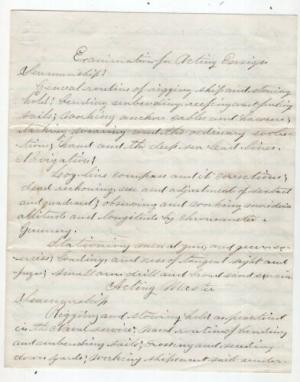 Examination for Acting Ensign
Seamanship;
General routine of rigging ship and stowing
hold; bending unbending, reefing and furling
sails; working anchors cables and hawsers;
tacking wearing and the ordinary evolu-
tions; hand and the deep sea lead lines.
Navigation;
Log-line compass and it corrections;
dead reckoning, use and adjustment of sextant
and quadrant; observing and working meridian
altitude and longitude by chronometer.
Gunnery.
Stationing men at guns, and gun exer-
cises; loading; and uses of tangent sight and
fuzes; small arm drill and broad sword exercise
Acting Master
Seamanship
Rigging and stowing hold as practiced
in the Naval service; usual routine of bending
and unbending sails; crossing and sending
down yards; working ship and sail under